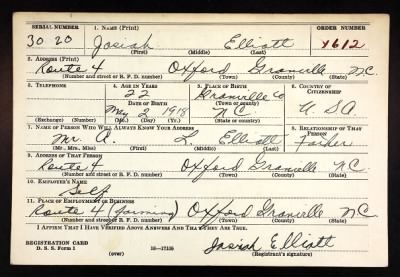 SERIAL NUMBER 1. NAME (Print) ORDER NUMBER
3020 Josiah Elliott 1612
(First) (Middle) (Last)
2. ADDRESS (Print)
Route 4 Oxford Granville N.C.
(Number and street or R. F. D. number) (Town) (County) (State)
3. TELEPHONE 4. AGE IN YEARS 5. PLACE OF BIRTH 6. COUNTRY OF CITIZENSHIP
22 Granville Co
DATE OF BIRTH (Town or county)
May 2 1918 N.C. U S A
(Exchange) (Number) (Mo.) (Day) (Yr.) (State or country)
7. NAME OF PERSON WHO WILL ALWAYS KNOW YOUR ADDRESS 8. RELATIONSHIP OF THAT PERSON
Mr. A. L. Elliott Father
(Mr., Mrs., Miss) (First) (Middle) (Last)
9. ADDRESS OF THAT PERSON
Route 4 Oxford Granville N.C.
(Number and street or R. F. D. number) (Town) (County) (State)
10. EMPLOYER'S NAME
Self
11. PLACE OF EMPLOYMENT OR BUSINESS
Route 4 (farming) Oxford Granville N.C.
(Number and street or R. F. D. number) (Town) (County) (State)
I AFFIRM THAT I HAVE VERIFIED ABOVE ANSWERS AND THAT THEY ARE TRUE.
REGISTRATION CARD
D. S. S. Form 1 16—17105 Josiah Elliott
(over) (Registrant's signature)